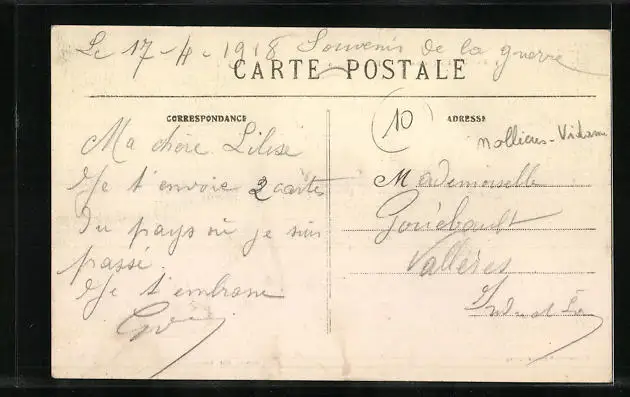 Le 17-4-1918 Souvenir de la guerre
CARTE POSTALE
CORRESPONDANCE
Ma chère Lilise
Je t'envoie 2 cartes
Du pays où je suis
passé.
Je t'embrasse
ADRESSE
10
Molliens-Vidame
Mademoiselle
Vallères
Indre et Loire